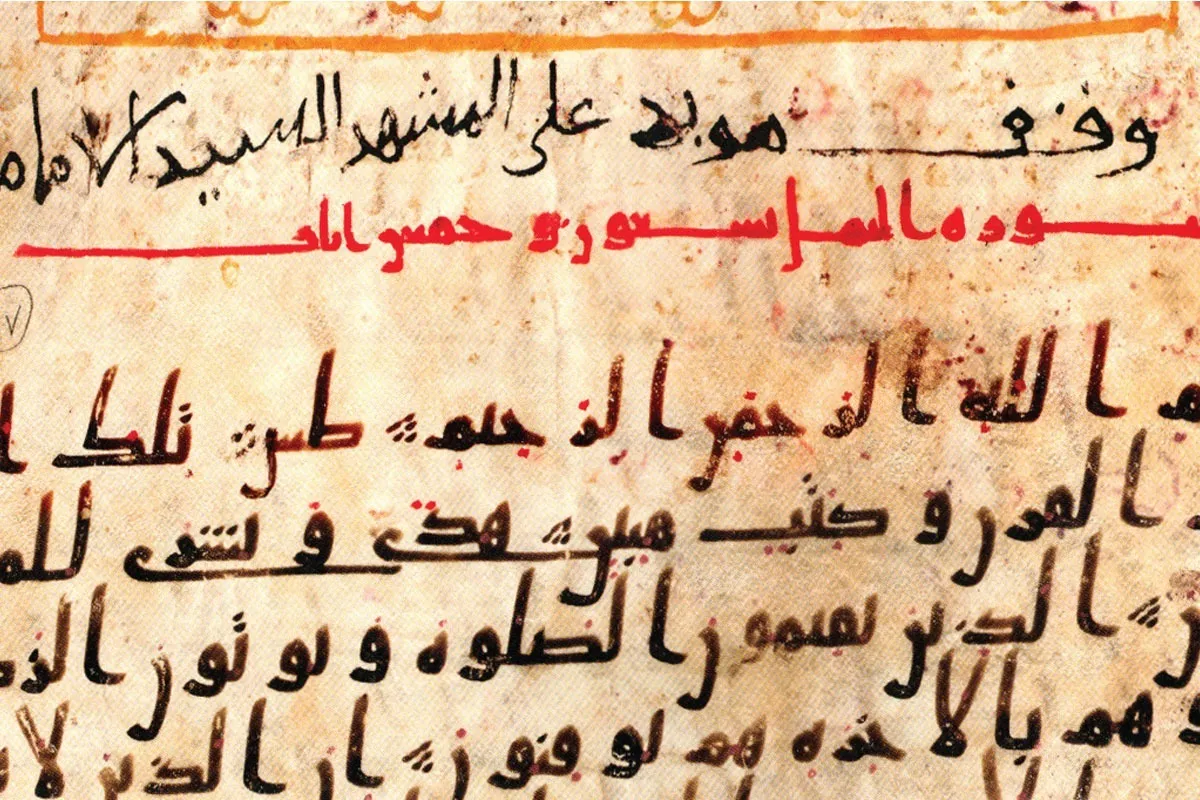 وقف موبد على المشهد السيد الامام
سوره النمل تسعون و خمس ايات
الله الرحمن الرحيم طس تلك ا
القرن و كتب مبين هدى و بشرى للمو
الذين يقيمون الصلوه و يوتون الز
و هم بالاخره هم يوقنون ان الذين لا